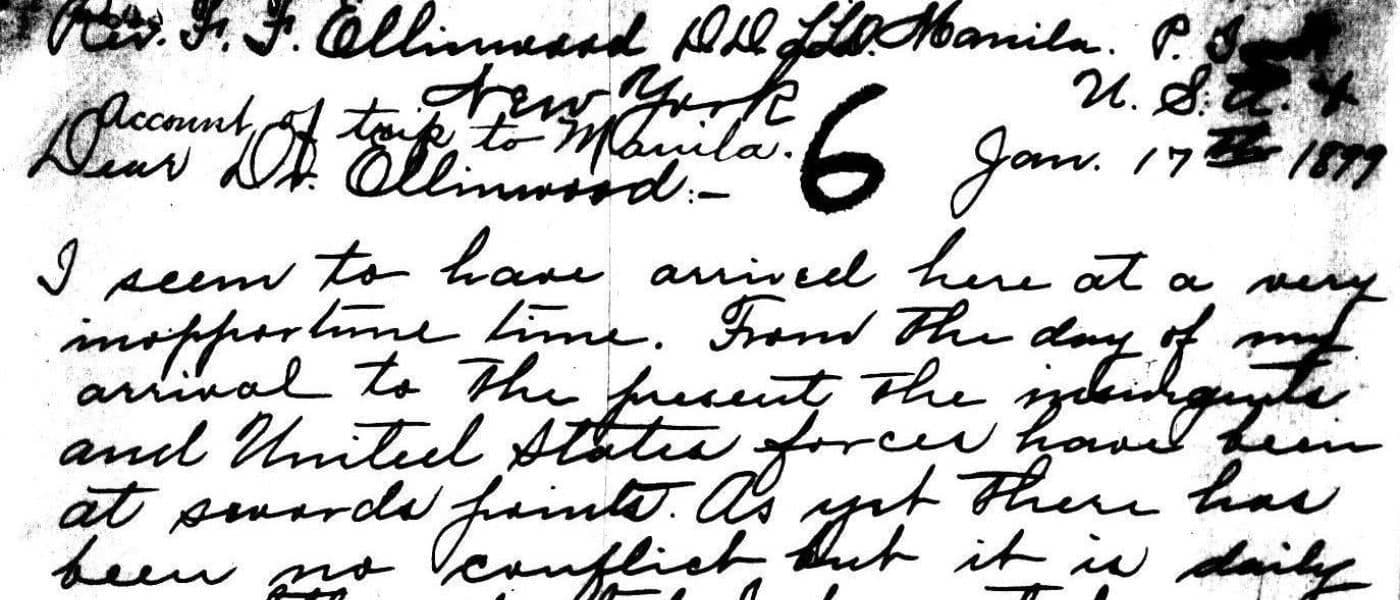 Rev. F. F. Ellinwood D.D. LLD. Manila. P. I.
New York U. S. A.
Account of trip to Manila.
6
Dear Dr. Ellinwood:— Jan. 17th 1899
I seem to have arrived here at a very
inopportune time. From the day of my
arrival to the present the insurgents
and United States forces have been
at swords points. As yet there has
been no conflict but it is daily